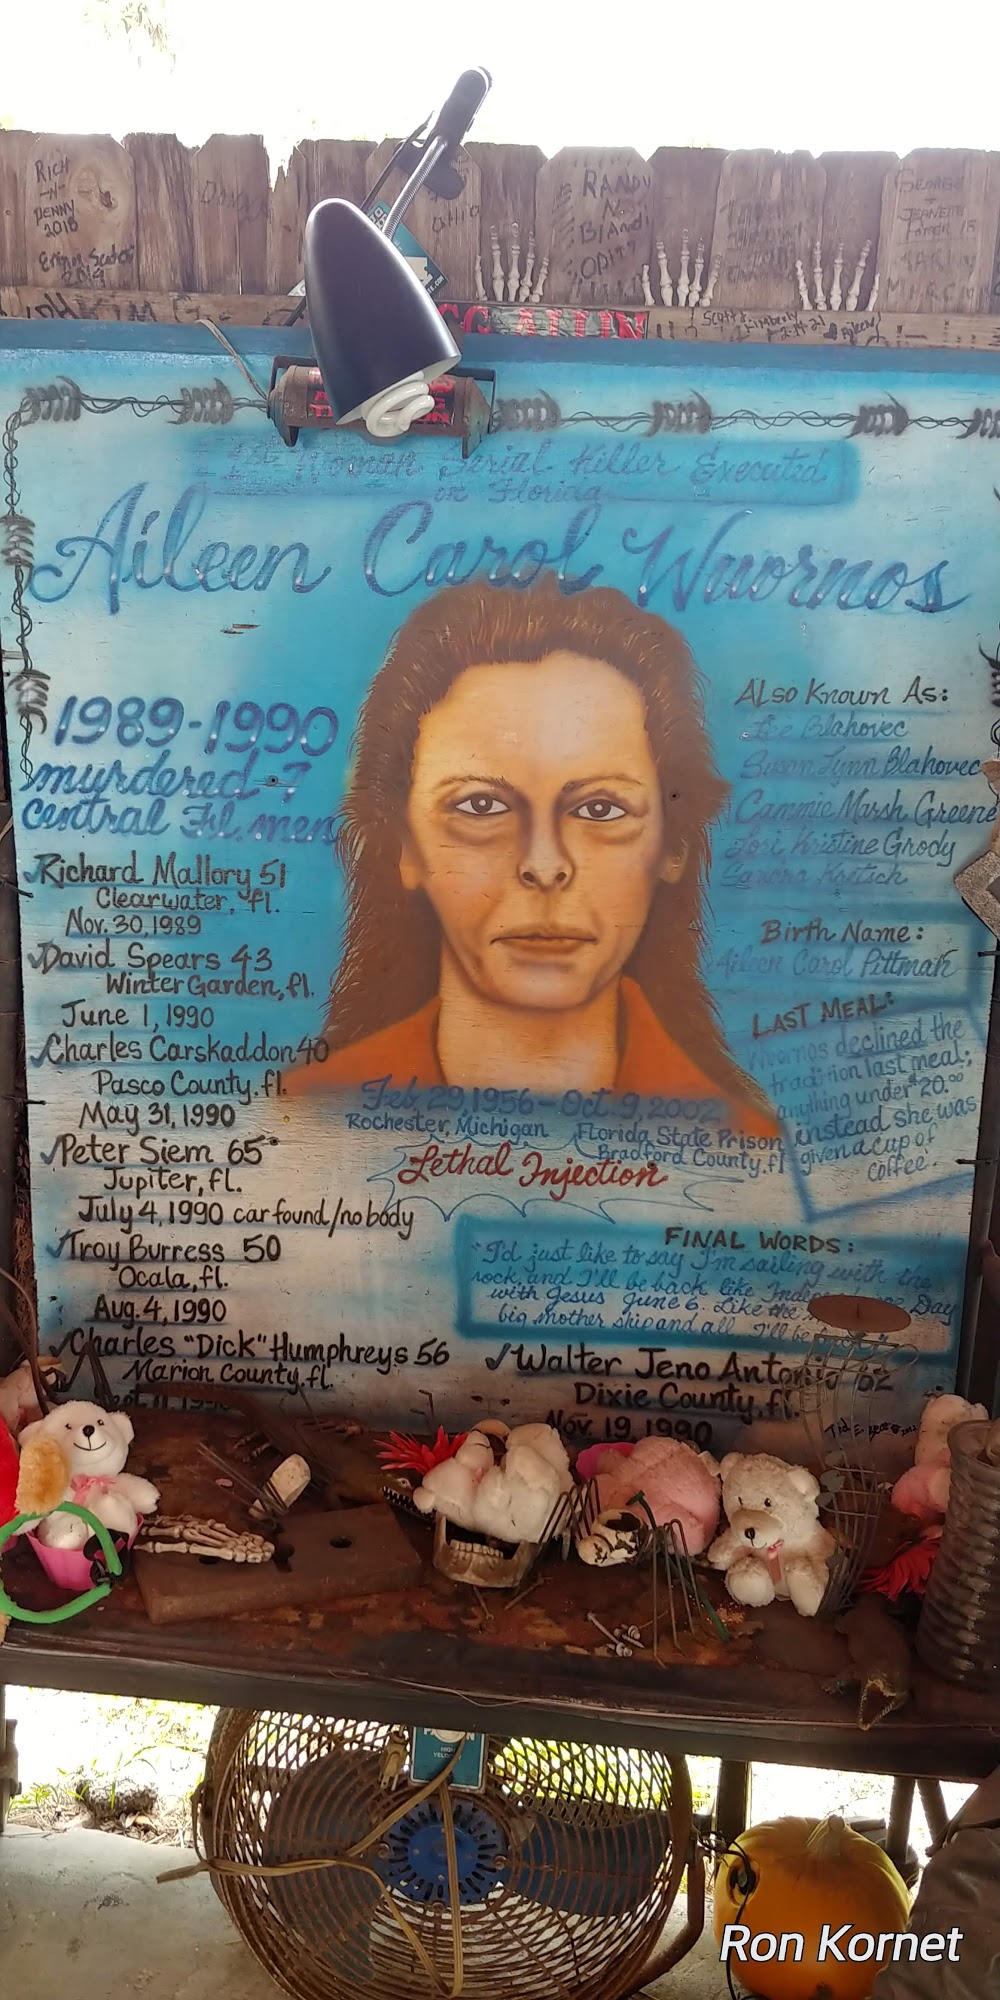 RICH
-N-
PENNY
2018
2019
RANDY
N
GEORGE
JEANETTE
KIM
GG ALLIN
Scott &
Kimberly
2-14-21
1st Woman Serial Killer Executed
in Florida
Aileen Carol Wuornos
1989-1990
murdered 7
central Fl. men
Richard Mallory 51
Clearwater, fl.
Nov. 30, 1989
David Spears 43
Winter Garden, fl.
June 1, 1990
Charles Carskaddon 40
Pasco County, fl.
May 31, 1990
Peter Siem 65
Jupiter, fl.
July 4, 1990 car found/no body
Troy Burress 50
Ocala, fl.
Aug. 4, 1990
Charles "Dick" Humphreys 56
Marion County, fl.
Sept 11, 1990
Also Known As:
Lee Blahovec
Susan Lynn Blahovec
Cammie Marsh Greene
Lori Kristine Grody
Sandra Kretsch
Birth Name:
Aileen Carol Pittman
LAST MEAL:
Wuornos declined the
tradition last meal;
anything under $20.00
instead she was
given a cup of
coffee.
Feb 29, 1956 - Oct. 9, 2002
Rochester, Michigan
Florida State Prison
Bradford County, fl
Lethal Injection
FINAL WORDS:
"I'd just like to say I'm sailing with the
rock, and I'll be back like Independence Day
with Jesus June 6. Like the
big mother ship and all. I'll be
Walter Jeno Antonio 62
Dixie County, fl.
Nov. 19, 1990
Ron Kornet